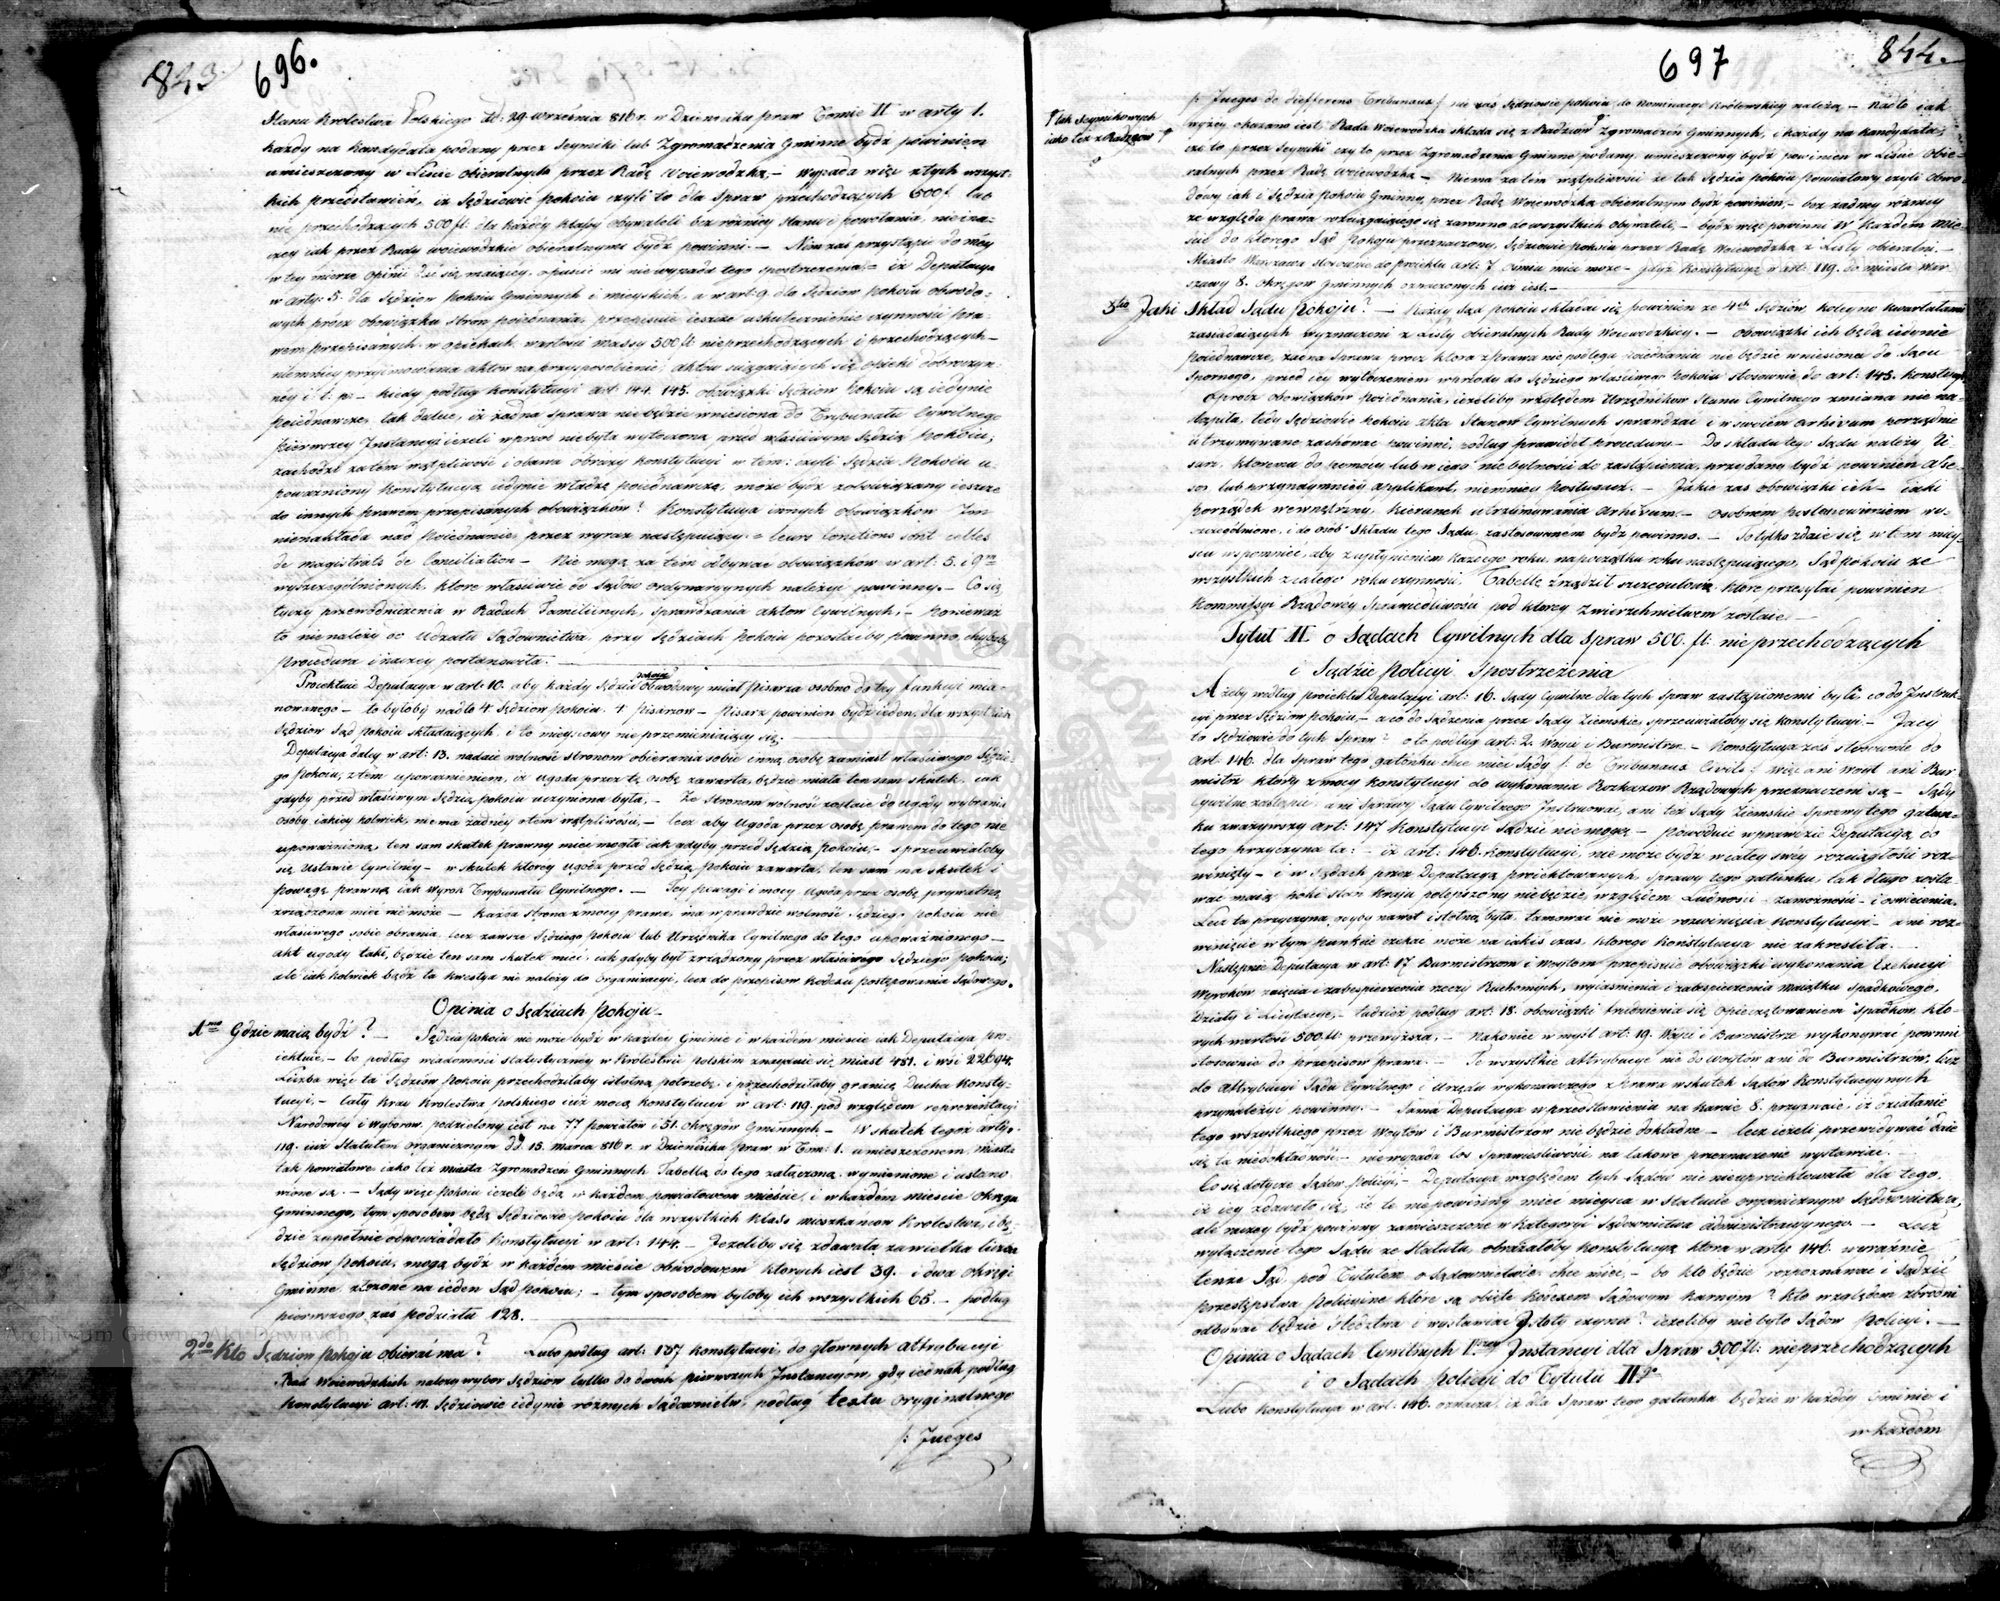 843 696.
Stanu Krolestwa Polskiego dd: 29. września 816 r. w Dzienniku praw Tomie II w arty 1.
każdy na kandydata podany przez Seymiki lub Zgromadzenia Gminne bydź powinien
umieszczony w Liście obieralnych przez Radę Woiewodzką, — wypada więc z tych wszyst-
kich przedstawień, iż Sędziowie pokoiu czyli to dla Spraw przechodzących 500 f. lub
nie przechodzących 500 fl: dla każdéy klassy obywateli bez różnicy stanu i powołania, nie ina-
czey iak przez Rady woiewodzkie obieralnymi bydź powinni. — Nim zaś przystąpię do méy
w tey mierze opinii dać się maiącey, opuścić mi nie wypada tego spostrzeżenia, — iż Deputacya
w arty: 5. dla Sędziow pokoiu Gminnych i mieyskich, a w art: 9. dla Sędziow pokoiu obwodo-
wych prócz obowiązku stron poiednania, przepisuie ieszcze uskutecznienie czynności pra-
wem przepisanych w opiekach, wartości massy 500 fl: nieprzechodzących i przechodzących —
niemniey przyimowania aktow na przysposobienie, aktów ściągaiących się opieki dobroczyn-
ney i t. p: — kiedy podług konstytucyi art: 144. 145. obowiązki Sędziow Pokoiu są iedynie
poiednawcze, tak dalece, iż żadna sprawa nie będzie wniesiona do Trybunału Cywilnego
pierwszey Instancyi ieżeli wprzod nie była wytoczona przed właściwym Sędzią pokoiu;
zachodzi zatem wątpliwość i obawa obrazy konstytucyi w tém: czyli Sędzia Pokoiu u-
poważniony konstytucyą iedynie władzą poiednawczą, może bydź zobowiązany ieszcze
do innych prawem przepisanych obowiązków? Konstytucya innych obowiązkow Im
nie nakłada nad Poiednanie, przez wyraz następuiący: = leurs fonctions sont celles
de magistrats de Conciliation — Nie mogą zatém odbywać obowiązków w art: 5. i 9m
wyszczególnionych, ktore właściwie do Sądow ordynaryinych należyć powinny. — Co się
tyczy przewodniczenia w Radach familiinych, sprawdzania aktow Cywilnych, — ponieważ
to nie należy do Udziału Sądownictwa, przy Sędziach Pokoiu pozostać by powinno, chybaby
procedura inaczey postanowiła.
Proiektuie Deputacya w art: 10. aby każdy Sędzia pokoiu obwodowy miał pisarza osobno do tey funkcyi mia-
nowanego — to byłoby nadto 4 Sędziow pokoiu. 4. pisarzow — pisarz powinien bydź ieden, dla wszystkich
Sędziow Sąd pokoiu składaiących, i to mieyscowy nieprzemieniaiący się.
Deputacya daley w art: 13. nadaie wolność stronom obierania sobie inną osobę zamiast właściwego Sędzie-
go Pokoiu, z tém upoważnieniem, iż ugoda przez tę osobę zawarta, będzie miała ten sam skutek, iak
gdyby przed właściwym Sędzią pokoiu uczyniona była, — Że stronom wolność zostaie do ugody wybrania
osoby iakiey kolwiek, niema żadney o tém wątpliwości, — lecz aby ugoda przez osobę prawem do tego nie
upoważnioną, ten sam skutek prawny mieć mogła iak gdyby przed Sędzią Pokoiu, — sprzeciwiałoby
się ustawie Cywilney — w skutek ktorey ugoda przed Sędzią pokoiu zawarta, ten sam ma skutek i
powagę prawną iak wyrok Trybunału Cywilnego. — Tey powagi i mocy ugoda przez osobę prywatną
zrządzona mieć nie może — każda strona z mocy prawa, ma wprawdzie wolność Sędziego pokoiu nie
właściwego sobie obrania, lecz zawsze Sędziego Pokoiu lub Urzędnika Cywilnego do tego upoważnionego —
akt ugody taki, będzie ten sam skutek mieć, iak gdyby był zrządzony przez właściwego Sędziego pokoiu;
ale iak kolwiek bądź ta kwestya nie należy do organizacyi, lecz do przepisow Kodexu postępowania Sądowego.
Opinia o Sędziach pokoju —
1mo Gdzie maią bydź? — Sędzia pokoiu nie może bydź w każdey Gminie i w każdem mieście iak Deputacya pro-
iektuie, — bo podług wiadomości statystyczney w Krolestwie Polskim znayduie się miast 481. i wsi 22694.
Liczba więc ta Sędziów Pokoiu przechodziłaby istotną potrzebę, i przechodziłaby granice Ducha konsty-
tucyi, — Cały kray Krolestwa Polskiego iuż mocą konstytucyi w art: 119. pod względem reprezentacyi
Narodowéy i wyborow, podzielony iest na 77 powiatów i 51. okręgów Gminnych. — W skutek tegoż arty:
119. iuż Statutem organicznym dd 15. marca 816 r. w Dzienniku Praw w Tom: 1. umieszczonem, miasta
tak powiatowe, iako też miasta Zgromadzeń Gminnych Tabellą do tego załączoną wymienione i ustano-
wione są. — Sądy więc Pokoiu ieżeli będą w każdem powiatowem mieście, i w każdem mieście okręgu
Gminnego, tym sposobem będą Sędziowie pokoiu dla wszystkich klass mieszkancow Krolestwa, i bę-
dzie zupełnie odpowiadało Konstytucyi w art: 144. — Jeżeliby się zdawała zawielka liczba
Sędziow pokoiu, mogą bydź w każdem mieście obwodowem ktorych iest 39. i dwa okręgi
Gminne złożone na ieden Sąd pokoiu; — tym sposobem byłoby ich wszystkich 65. — podług
pierwszego zaś podziału 128.
2do Kto Sędziow Pokoju obierać ma? Lubo podług art: 137 konstytucyi, do głownych attrybucyi
Rad Woiewodzkich należy wybor Sędziow tylko do dwoch pierwszych Instancyow, gdy iednak podług
konstytucyi art: 41. Sędziowie iedynie różnych Sądownictw, podług textu oryginalnego
/: Jueges
697 844.
/: Jueges de differens Tribunaux :/ nie zaś Sędziowie pokoiu, do Nominacyi Krolewskiey należą. — Nadto iak
wyżey okazano iest Rada Woiewodzka składa się z Radzców Zgromadzeń Gminnych, i każdy na kandydata,
tak Seymikowych
iako też z Radzcow
czy to przez Seymiki czy to przez Zgromadzenia Gminne podany, umieszczony bydź powinien w Liście obie-
ralnych przez Radę Woiewodzką. — Niema zatém wątpliwości że tak Sędzia pokoiu powiatowy czyli obwo-
dowy iak i Sędzia Pokoiu Gminny, przez Radę Woiewodzką obieralnym bydź powinien, — bez żadney różnicy
ze względu prawa rozciągaiącego się zarówno do wszystkich obywateli, — bydź więc powinni w każdem mie-
ście do ktorego Sąd Pokoju przeznaczony, Sędziowie pokoiu przez Radę Woiewodzką z Listy obieralni. —
Miasto Warszawa stosownie do proiektu art: 7. ośmiu mieć może — gdyż konstytucyą w art: 119. do miasta War-
szawy 8. okręgow Gminnych oznaczonych iuż iest. —
3tio Jaki Skład Sądu Pokoju? — Każdy Sąd pokoiu składać się powinien ze 4ch Sędziów, koleyno kwartałami
zasiadaiących wyznaczeni z Listy obieralnych Rady Woiewodzkiey. — obowiązki ich będą iedynie
poiednawcze, żadna sprawa procz ktora z Prawa nie podlega iednaniu nie będzie wniesiona do Sądu
Spornego, przed iey wytoczeniem wprzody do Sędziego właściwego Pokoiu stosownie do art: 145. konstytucyi
Oprócz obowiązkow Poiednania, ieżeliby względem Urzędników Stanu Cywilnego zmiana nie na-
stąpiła, tedy Sędziowie Pokoiu akta Stanow Cywilnych sprawdzać i w swoiem archivum porządnie
utrzymywane zachować powinni, podług prawideł procedury. — Do składu tego Sądu należy Pi
sarz, ktoremu do pomocy lub w iego nie bytności do zastąpienia, przydany bydź powinien Asse-
ssor, lub przynaymniey applikant, niemniey Posługacz. — Jakie zaś obowiązki ich — iaki
porządek wewnętrzny, kierunek utrzymywania Archivum — osobnem postanowieniem wy-
szczególnione, i do osób Składu tego Sądu, zastosowanem bydź powinno. — To tylko zdaie się w tem miey-
scu wspomnieć, aby z upłynieniem każdego roku, na początku roku następuiącego, Sąd pokoiu ze
wszystkich z całego roku czynności, Tabellę zrządził szczegółową, którą przesyłać powinien
Kommissyi Rządowey Sprawiedliwości pod ktorey Zwierzchnictwem zostaie. —
Tytuł II o Sądach Cywilnych dla Spraw 500. fl: nie przechodzących
i Sądzie Policyi Spostrzeżenia
Ażeby według proiektu Deputacyi art: 16. Sądy Cywilne dla tych Spraw zastąpionemi byli, co do Instruk-
cyi przez Sędziow Pokoiu, — a co do Sądzenia przez Sądy Ziemskie, sprzeciwiałoby się konstytucyi — Jacy
to Sędziowie do tych Spraw? oto podług art: 2. Woyci i Burmistrze — Konstytucya zaś stosownie do
art: 146. dla Spraw tego gatunku chce mieć Sądy /: de Tribunaux Civils :/ więc ani woyt ani Bur-
mistrz ktorzy z mocy konstytucyi do wykonania Rozkazow Rządowych przeznaczeni są — Sądy
Cywilne zastąpić, ani Sprawy Sądu Cywilnego Instruować, ani też Sądy Ziemskie Sprawy tego gatun-
ku zważywszy art: 147 Konstytucyi Sądzić nie mogą — powoduie wprawdzie Deputacyą do
tego przyczyna ta: — iż art: 146. konstytucyi, nie może bydź w całey swéy rozciągłości roz-
winięty — i w Sądach przez Deputacyą proiektowanych Sprawy tego gatunku, tak długo zosta-
wać maią, poki stan kraju polepszony nie będzie, względem Ludności — zamożności — i oświecenia.
Lecz ta przyczyna, gdyby nawet istotną była, tamować nie może rozwinięcia konstytucyi — ani roz-
winięcie w tym punkcie czekać może na iakiś czas, ktorego konstytucya nie zakreśliła. —
Następnie Deputacya w art: 17 Burmistrzom i Woytom przepisuie obowiązki wykonania Exekucyi
Wyroków zaięcia i zabespieczenia rzeczy Ruchomych, wyiaśnienia i zabespieczenia maiątku Spadkowego,
Działy i Licytacye, — tudzież podług art: 18. obowiązki trudnienia się opieczętowaniem Spadkow, kto-
rych wartość 500 fl: przewyższa, — nakoniec w myśl art: 19. Woyci i Burmistrze wykonywać powinni
stosownie do przepisow prawa: — Te wszystkie attrybucye nie do Woytów ani do Burmistrzów, lecz
do attrybucyi Sądu Cywilnego i Urzędu wykonawczego z prawa w skutek Sądow konstytucyynych
przynależyć powinny. — Sama Deputacya w przedstawieniu na karcie 8. przyznaie iż działanie
tego wszystkiego przez Woytow i Burmistrzow nie będzie dokładne — lecz ieżeli przewidywać daie
się ta niedokładność, — niewypada los Sprawiedliwości na takowe przeznaczenie wystawiać.
Co się dotycze Sądow Policyi, — Deputacya względem tych Sądow nic nie uproiektowała dla tego,
iż iey zdawało się, że te niepowinny mieć mieysca w Statucie organicznym Sądownictwa,
ale raczey bydź powinny zamieszczone w kategoryi Sądownictwa administracyynego — Lecz
wyłączenie tego Sądu ze Statutu, obrażałoby konstytucyą która w arty 146. wyraźnie
tenże Sąd, pod Tytułem o Sądownictwie chce mieć, — bo kto będzie rozpoznawać i Sądzić
przestępstwa Policyine które są obięte kodexem Sądowym karnym? kto względem zbrodni
odbywać będzie śledztwa i wystawiać Istotę czynu? ieżeliby nie było Sądow Policyi. —
Opinia o Sądach Cywilnych 1szey Instancyi dla Spraw 500 fl: nieprzechodzących
i o Sądach policyi do Tytułu IIgo
Lubo konstytucya w art: 146. oznacza, iż dla Spraw tego gatunku będzie w każdey Gminie i
w każdem
Archiwum Główne Akt Dawnych